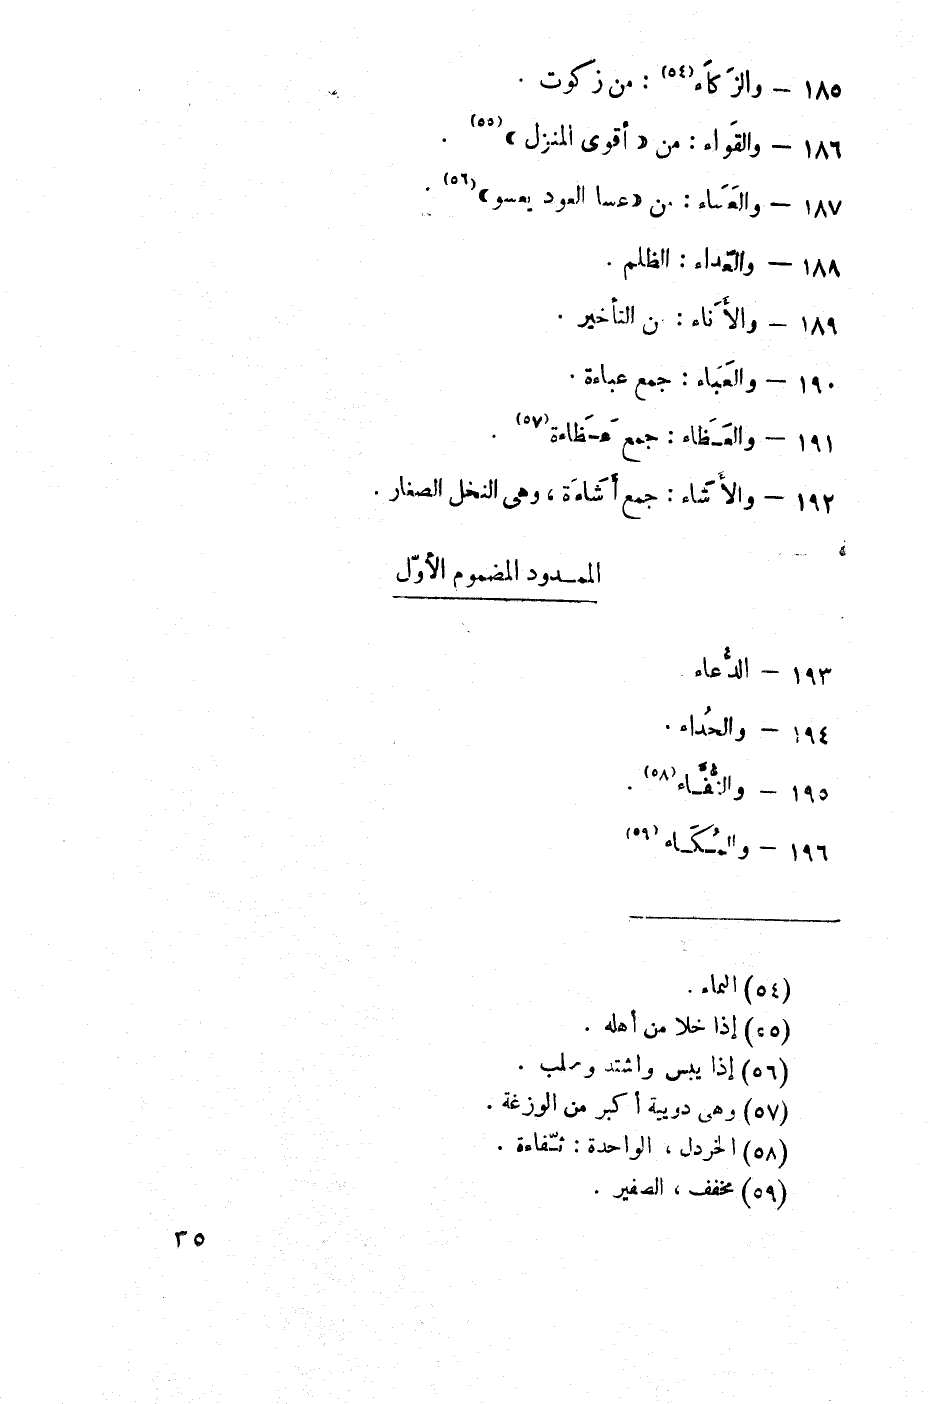 ١٨٥ – والزَكَاء(٥٤) : من زكوت .
١٨٦ – والقَواء : من « أقوى المنزل »(٥٥) .
١٨٧ – والعَسَاء : من «عسا العود يعسو»(٥٦) .
١٨٨ – والعَداء : الظلم .
١٨٩ – والأَنَاء : من التأخير .
١٩٠ – والعَبَاء : جمع عباءة .
١٩١ – والعَـظَاء : جمع عَـظَاءة(٥٧) .
١٩٢ – والأَشَاء : جمع أَشَاءَة ، وهى النخل الصغار .
الممـدود المضموم الأوّل
١٩٣ – الدُّعاء
١٩٤ – والحُداء .
١٩٥ – والثُّفَّـاء(٥٨) .
١٩٦ – والمُـكَـاء(٥٩)
(٥٤) النماء .
(٥٥) إذا خلا من أهله .
(٥٦) إذا يبس واشتد وصلب .
(٥٧) وهى دويبة أكبر من الوزغة .
(٥٨) الخردل ، الواحدة : ثـفّاءة .
(٥٩) مخفف ، الصفير .
٣٥